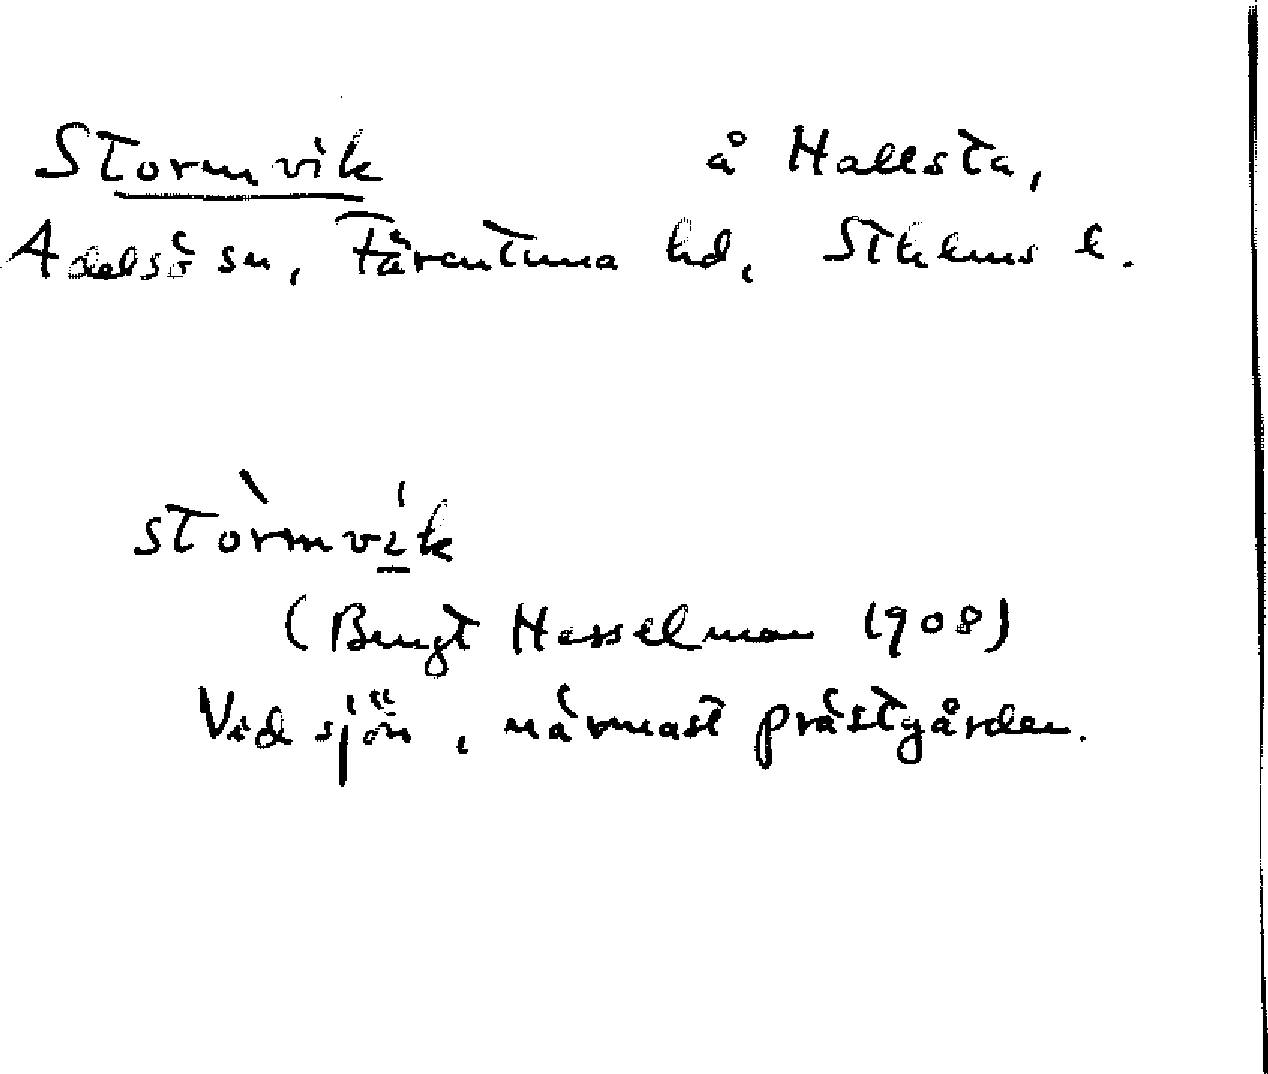 Stormvik å Hallsta,
Adelsö sn, Färentuna hd, Sthlms l.
stòrmvík
(Bengt Hesselman 1908)
Vid sjön, närmast prästgården.